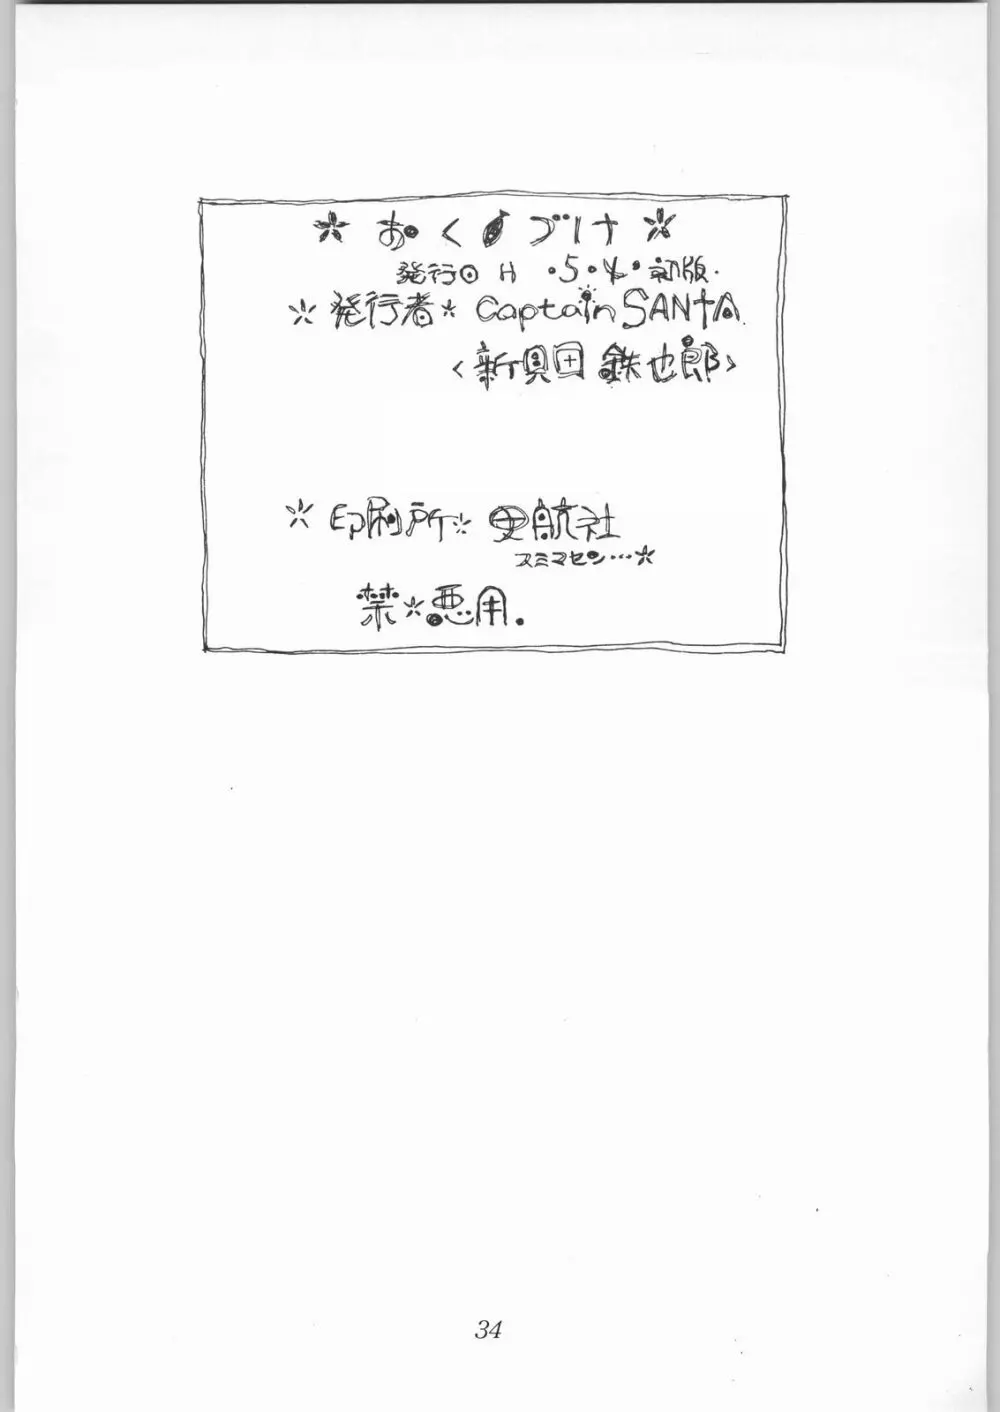 ☆ おくづけ ☆
発行日 H.5.4.初版.
☆ 発行者☆ Captain SANTA
<新貝田 鉄也郎>
☆ 印刷所☆ 曳航社
スミマセン…☆
禁☆悪用.
34